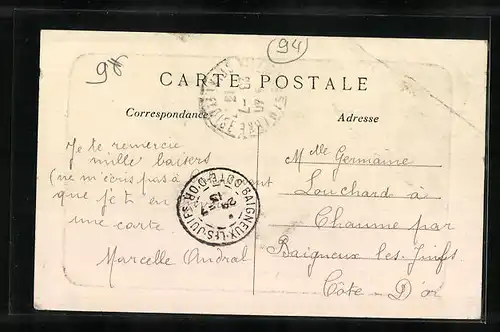 98
94
CARTE POSTALE
Correspondance
Adresse
Je te remercie
mille baisers
(ne m'écris pas à
que je t'en
une carte
Marcelle Andral
BAIGNEUX-LES-JUIFS CÔTE-D'OR
Mlle Germaine
Louchard à
Chaume par
Baigneux les Juifs
Côte-D'or